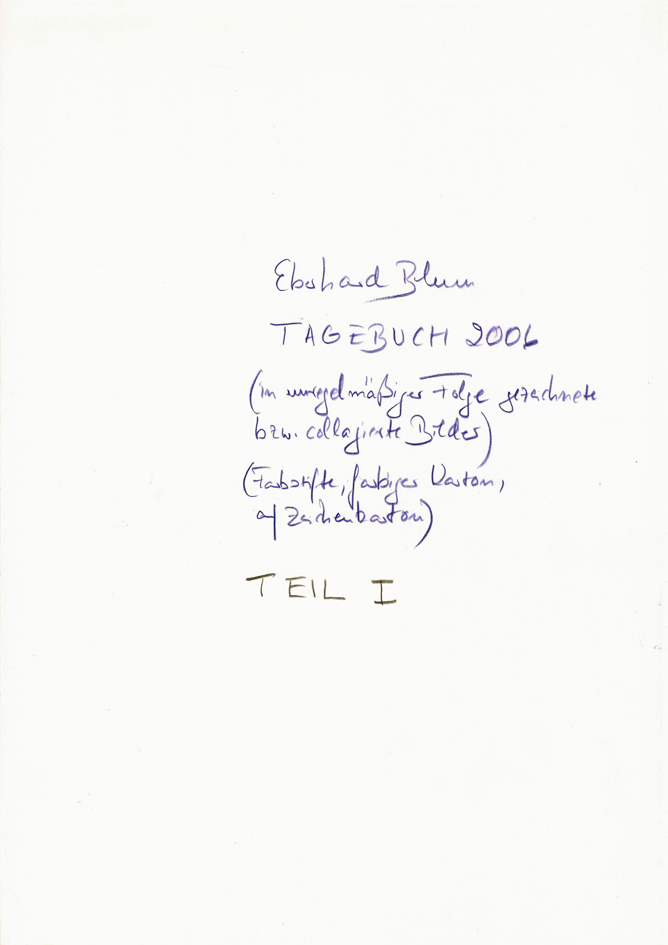 Eberhard Blum
TAGEBUCH 2006
(in unregelmäßiger Folge gezeichnete
bzw. collagierte Bilder)
(Farbstifte, farbiger Karton,
auf Zeichenkarton)
TEIL I